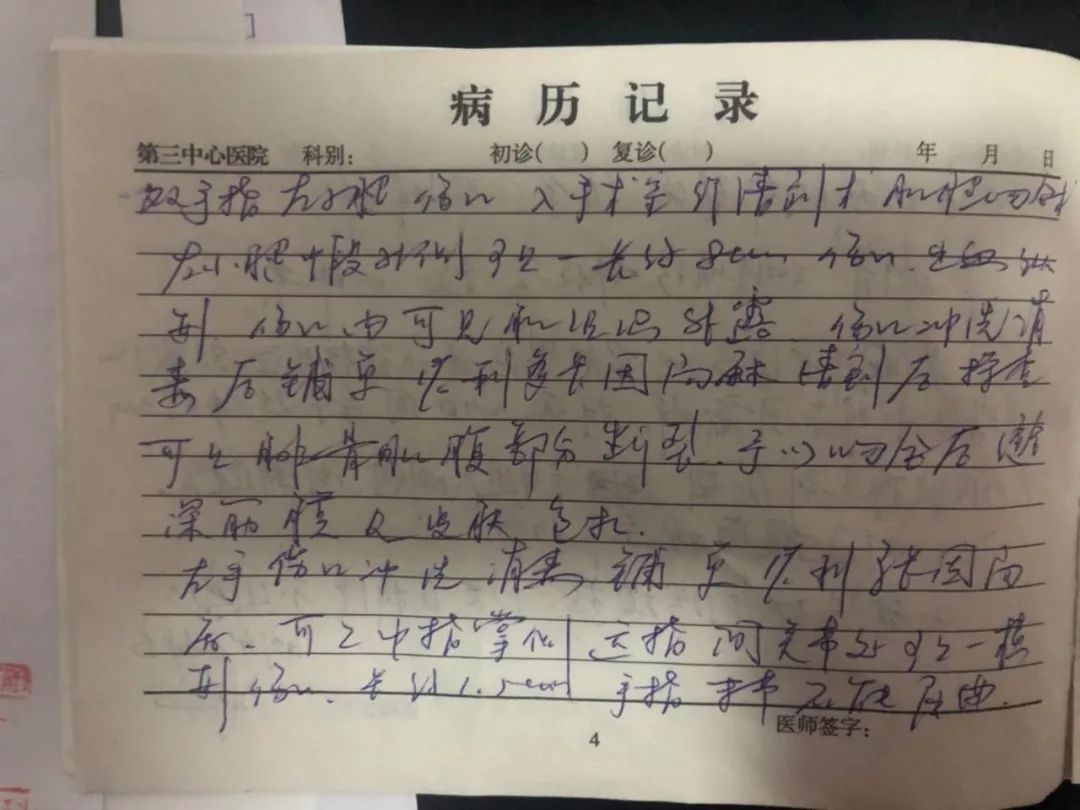 病历记录
第三中心医院 科别: 初诊( ) 复诊( ) 年 月 日
双手指左小腿伤口入手术室行清创术
左小腿中段外侧可见一长约8cm伤口
伤口内可见 组织外露 伤口冲洗消
毒后铺单 利多卡因局麻清创后探查
可见腓骨肌腹部分断裂 予以 合后缝
深筋膜及皮肤包扎.
左手伤口冲洗消毒铺单 利 因局
麻. 可见中指掌侧远指间关节处可见一横
形伤口. 长约1.5cm 手指 节不能屈曲.
4
医师签字: